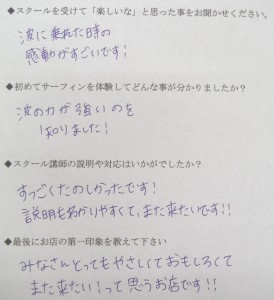 ◆スクールを受けて「楽しいな」と思った事をお聞かせください。
波に乗れた時の
感動がすごいです!
◆初めてサーフィンを体験してどんな事が分かりましたか?
波の力が強いのを
知りました!
◆スクール講師の説明や対応はいかがでしたか?
すっごくたのしかったです!
説明も分かりやすくて、また来たいです!!
◆最後にお店の第一印象を教えて下さい
みなさんとってもやさしくておもしろくて
また来たい!って思うお店です!!